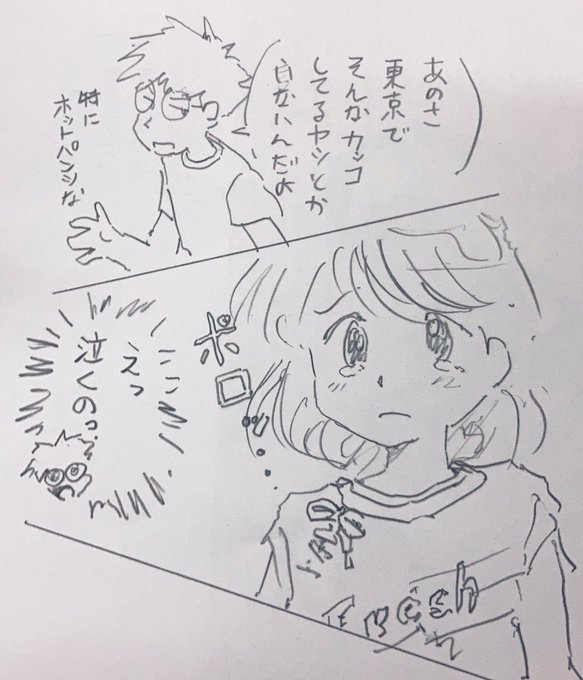 あのさ
東京で
そんなカッコ
してるヤツとか
ないんだよ
特に
ホットパンツな
ポロッ…
えっ
泣くのっ